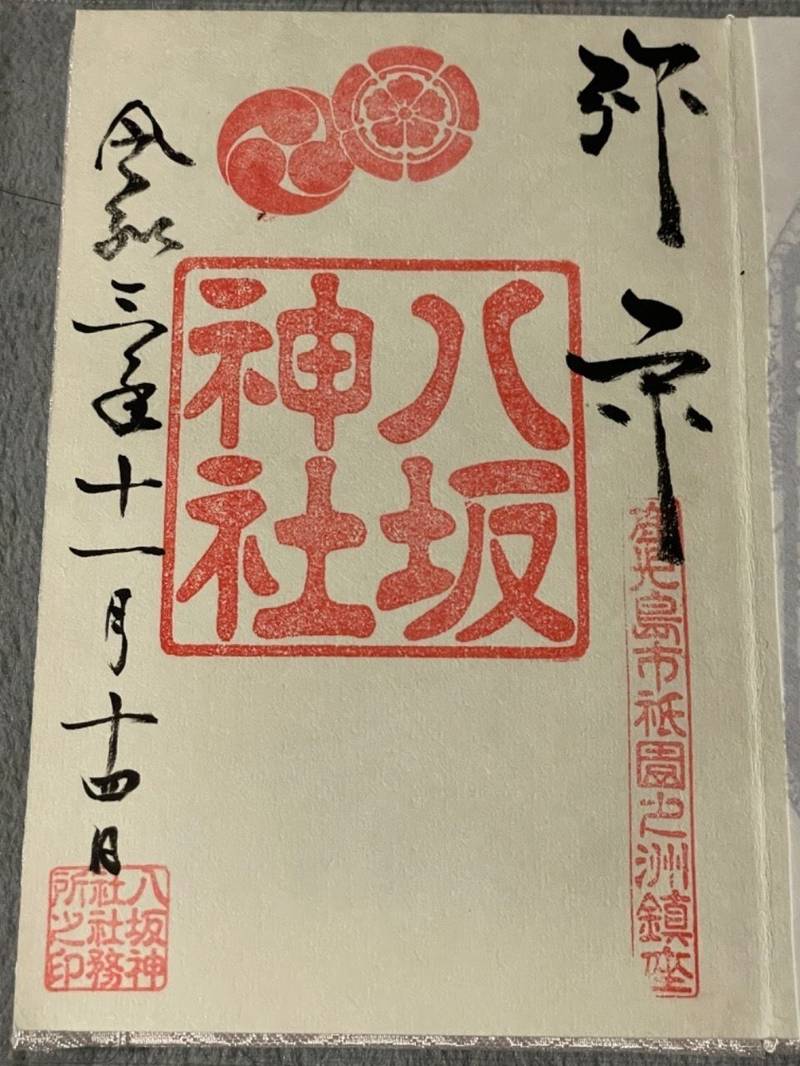 弥栄
鹿児島市祇園之洲鎮座
八坂
神社
令和三年十一月十四日
八坂神
社社務
所之印